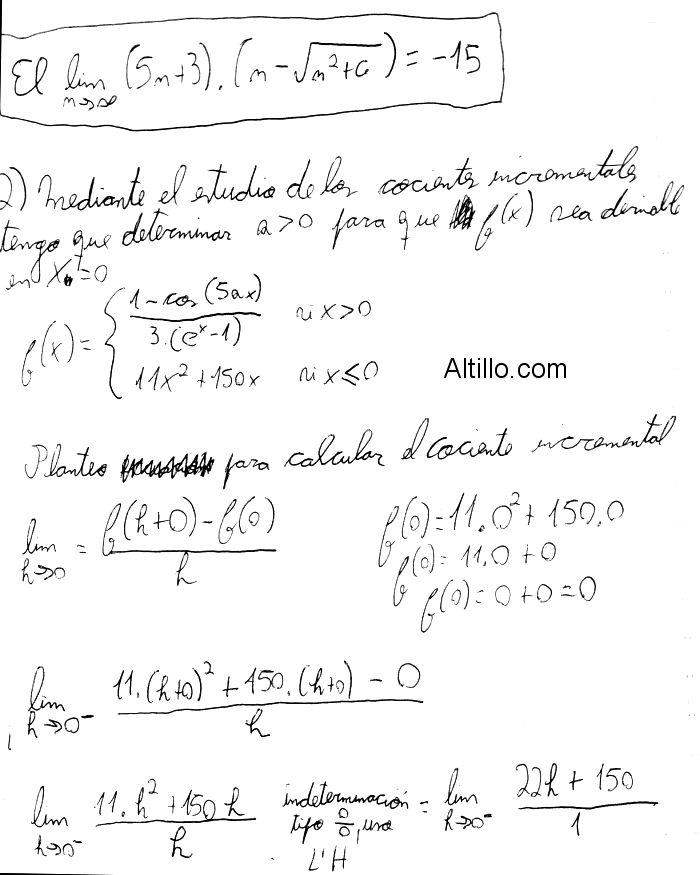 El lim (5n+3).(n-√(n²+6)) = -15
n→∞
2) Mediante el estudio de los cocientes incrementales
tengo que determinar a>0 para que f(x) sea derivable
en X₀=0
f(x)= { 1-cos(5ax) / 3.(eˣ-1) si x>0
11x²+150x si x≤0
Altillo.com
Planteo para calcular el cociente incremental
lim h→0 = f(h+0)-f(0) / h
f(0)=11.0²+150.0
f(0)=11.0+0
f(0)=0+0=0
lim h→0⁻ 11.(h+0)²+150.(h+0)-0 / h
lim h→0⁻ 11.h²+150h / h indeterminación tipo 0/0, uso L'H = lim h→0⁻ 22h+150 / 1